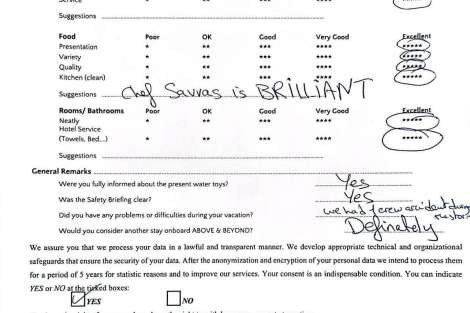 Suggestions
Food Poor OK Good Very Good Excellent
Presentation * ** *** **** *****
Variety * ** *** **** *****
Quality * ** *** **** *****
Kitchen (clean) * ** *** **** *****
Suggestions Chef Savvas is BRILLIANT
Rooms/ Bathrooms Poor OK Good Very Good Excellent
Neatly * ** *** **** *****
Hotel Service
(Towels, Bed...) * ** *** **** *****
Suggestions
General Remarks
Were you fully informed about the present water toys? Yes
Was the Safety Briefing clear? Yes
Did you have any problems or difficulties during your vacation? we had 1 crew accident during
Would you consider another stay onboard ABOVE & BEYOND? Definately
We assure you that we process your data in a lawful and transparent manner. We develop appropriate technical and organizational
safeguards that ensure the security of your data. After the anonymization and encryption of your personal data we intend to process them
for a period of 5 years for statistic reasons and to improve our services. Your consent is an indispensable condition. You can indicate
YES or NO at the ticked boxes:
YES NO